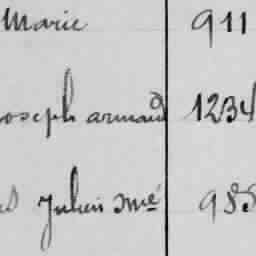 Marie 911
Joseph armand 1234
Julien Smé 985